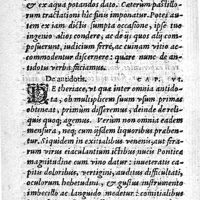 & ex aqua potandos dato. Cæterum pastillo-
rum tractationi hîc finis imponatur. Potes au-
tem ex iam dictis sumpta occasione, ipse tuo
ingenio alios condere, ac de ijs quos alij com-
posuerunt, iudicium ferre, ac cuinam vitio ac-
commodentur discernere: quare nunc de an-
tidotis verba faciamus.
De antidotis. CAP. VI.
DE theriace, vt quæ inter omnia antido-
ta, ob multiplicem suum vsum primas
obtineat, primùm disseremus deinde de reli-
quis quoq; agemus. Verùm non omnia eadem
mensura, neq; cum ijsdem liquoribus præben-
tur. Siquidem in exitialibus venenis, aut fera-
rum virus eiaculantium ictibus nucis Ponticæ
magnitudine cum vino datur: inueteratis ca-
pitis doloribus, vertigini, auditus difficultati,
oculorum hebetudini, & gustus instrumento
imbecillo ac languido modetur: comitialibus